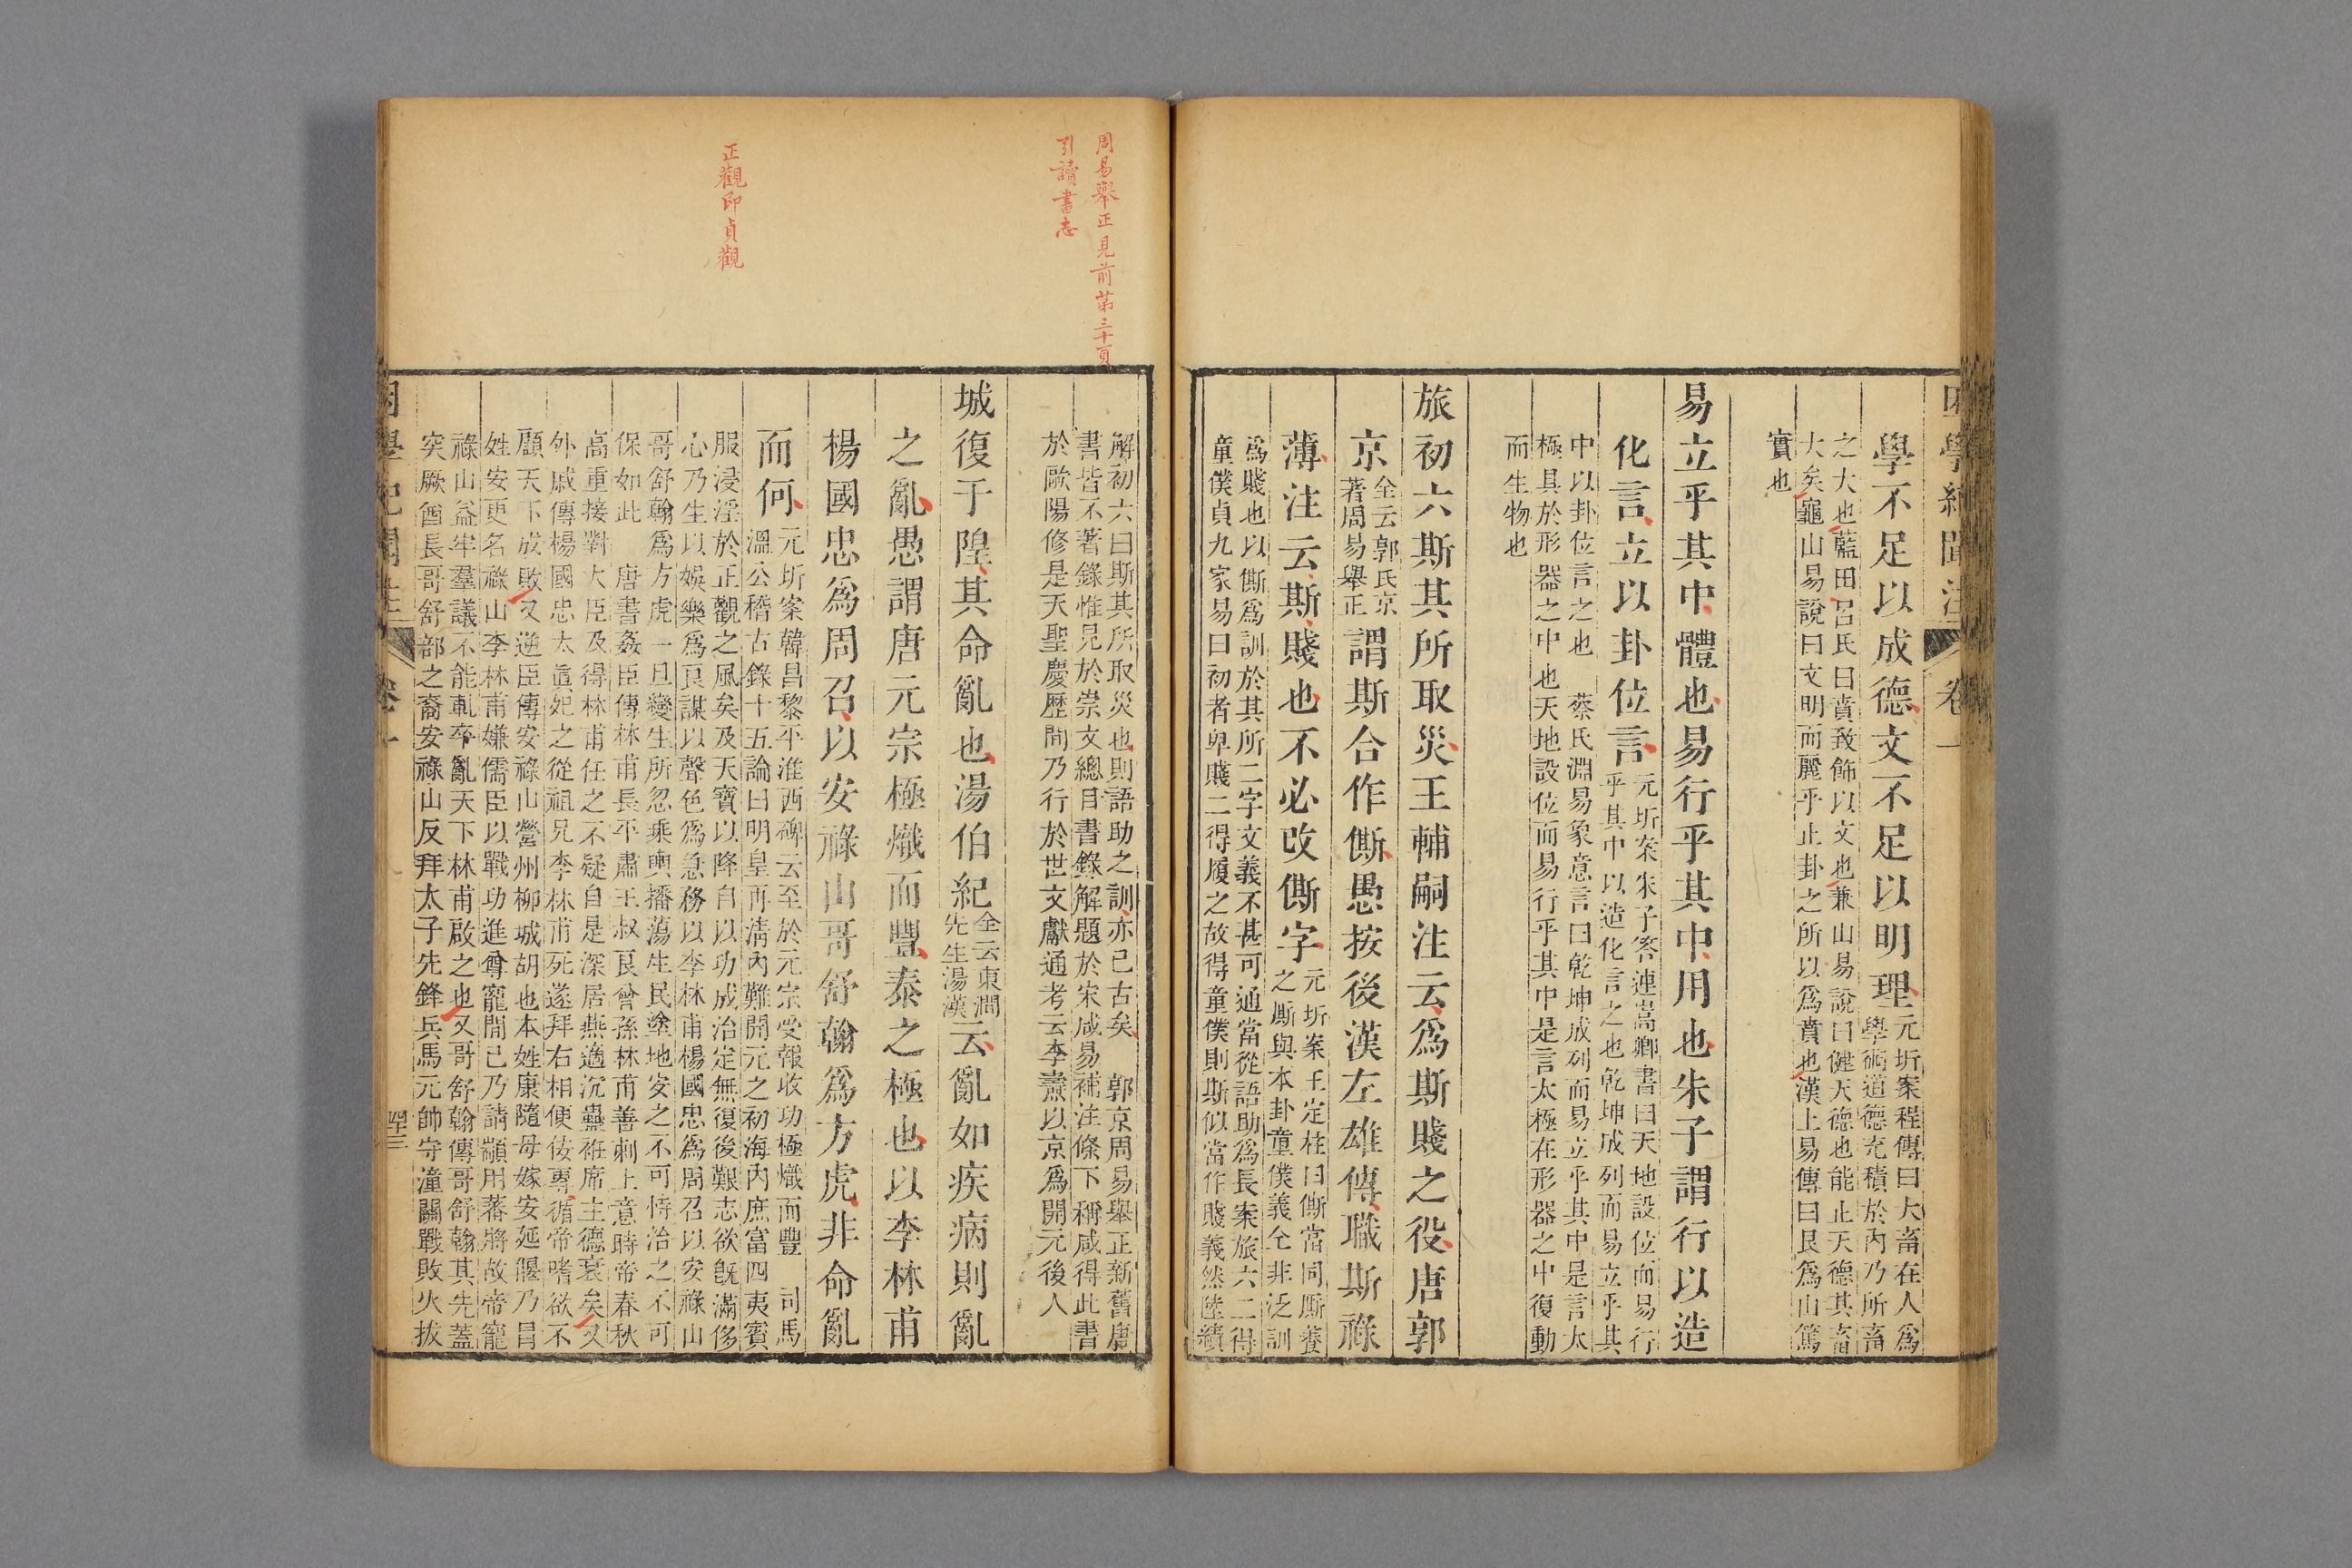 困學紀聞注 卷一
學不足以成德文不足以明理元圻案程傳曰大畜在人爲
學術道德充積於內乃所畜
之大也藍田呂氏曰賁致飾以文也兼山易說曰健天德也能止天德其畜
大矣龜山易說曰文明而麗乎止卦之所以爲賁也漢上易傳曰艮爲山篤
實也
易立乎其中體也易行乎其中用也朱子謂行以造
化言立以卦位言元圻案朱子答連嵩卿書曰天地設位而易行
乎其中以造化言之也乾坤成列而易立乎其
中以卦位言之也 蔡氏淵易象意言曰乾坤成列而易立乎其中是言太
極具於形器之中也天地設位而易行乎其中是言太極在形器之中復動
而生物也
旅初六斯其所取災王輔嗣注云爲斯賤之役唐郭
京全云郭氏京
著周易舉正謂斯合作㒋愚按後漢左雄傳職斯祿
薄注云斯賤也不必改㒋字元圻案王定柱曰㒋當同廝養
之廝與本卦童僕義仝非泛訓
爲賤也以㒋爲訓於其所二字文義不甚可通當從語助爲長案旅六二得
童僕貞九家易曰初者卑賤二得履之故得童僕則斯似當作賤義然陸績
周易舉正見前第三十頁
引讀書志
解初六曰斯其所取災也則語助之訓亦已古矣 郭京周易舉正新舊唐
書皆不著錄惟見於崇文總目書錄解題於宋咸易補注條下稱咸得此書
於歐陽修是天聖慶歷間乃行於世文獻通考云李燾以京爲開元後人
城復于隍其命亂也湯伯紀全云東澗
先生湯漢云亂如疾病則亂
之亂愚謂唐元宗極熾而豐泰之極也以李林甫
楊國忠爲周召以安祿山哥舒翰爲方虎非命亂
正觀即貞觀
而何元圻案韓昌黎平淮西碑云至於元宗受報收功極熾而豐 司馬
溫公稽古錄十五論曰明皇再清內難開元之初海內庶富四夷賓
服浸淫於正觀之風矣及天寶以降自以功成治定無復後艱志欲旣滿侈
心乃生以娛樂爲良謀以聲色爲急務以李林甫楊國忠爲周召以安祿山
哥舒翰爲方虎一旦變生所忽乘輿播蕩生民塗地安之不可恃治之不可
保如此 唐書姦臣傳林甫長平肅王叔良曾孫林甫善刺上意時帝春秋
高重接對大臣及得林甫任之不疑自是深居燕適沉蠱衽席主德衰矣又
外戚傳楊國忠太眞妃之從祖兄李林甫死遂拜右相便佞專循帝嗜欲不
顧天下成敗又逆臣傳安祿山營州柳城胡也本姓康隨母嫁安延偃乃冒
姓安更名祿山李林甫嫌儒臣以戰功進尊寵間己乃請顓用蕃將故帝寵
祿山益牢羣議不能軋卒亂天下林甫啟之也又哥舒翰傳哥舒翰其先蓋
突厥酋長哥舒部之裔安祿山反拜太子先鋒兵馬元帥守潼關戰敗火拔
困學紀聞注 卷一 四三